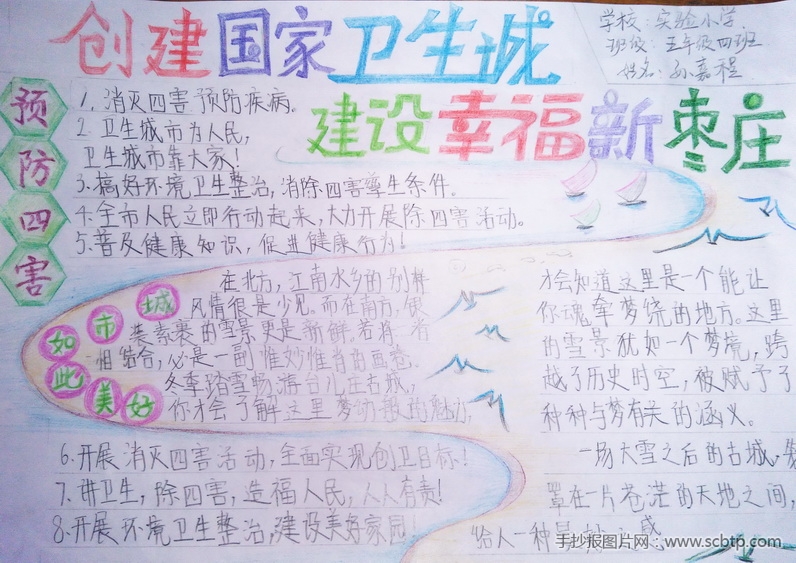 创建国家卫生城
建设幸福新枣庄
学校：实验小学
班级：五年级四班
姓名：孙嘉程
预防四害
1. 消灭四害预防疾病。
2. 卫生城市为人民，
卫生城市靠大家！
3. 搞好环境卫生整治，消除四害孳生条件。
4. 全市人民立即行动起来，大力开展除四害活动。
5. 普及健康知识，促进健康行为！
城市如此美好
在北方，江南水乡的别样
风情很是少见。而在南方，银
装素裹的雪景更是新鲜。若将二者
相结合，必是一副惟妙惟肖的画卷。
冬季踏雪畅游台儿庄古城，
你才会了解这里梦幻般的魅力，
才会知道这里是一个能让
你魂牵梦绕的地方。这里
的雪景犹如一个梦境，跨
越了历史时空，被赋予了
种种与梦有关的涵义。
一场大雪之后的古城，
罩在一片苍茫的天地之间，
给人一种
6. 开展消灭四害活动，全面实现创卫目标！
7. 讲卫生，除四害，造福人民，人人有责！
8. 开展环境卫生整治，建设美好家园！
手抄报图片网：www.scbtp.com